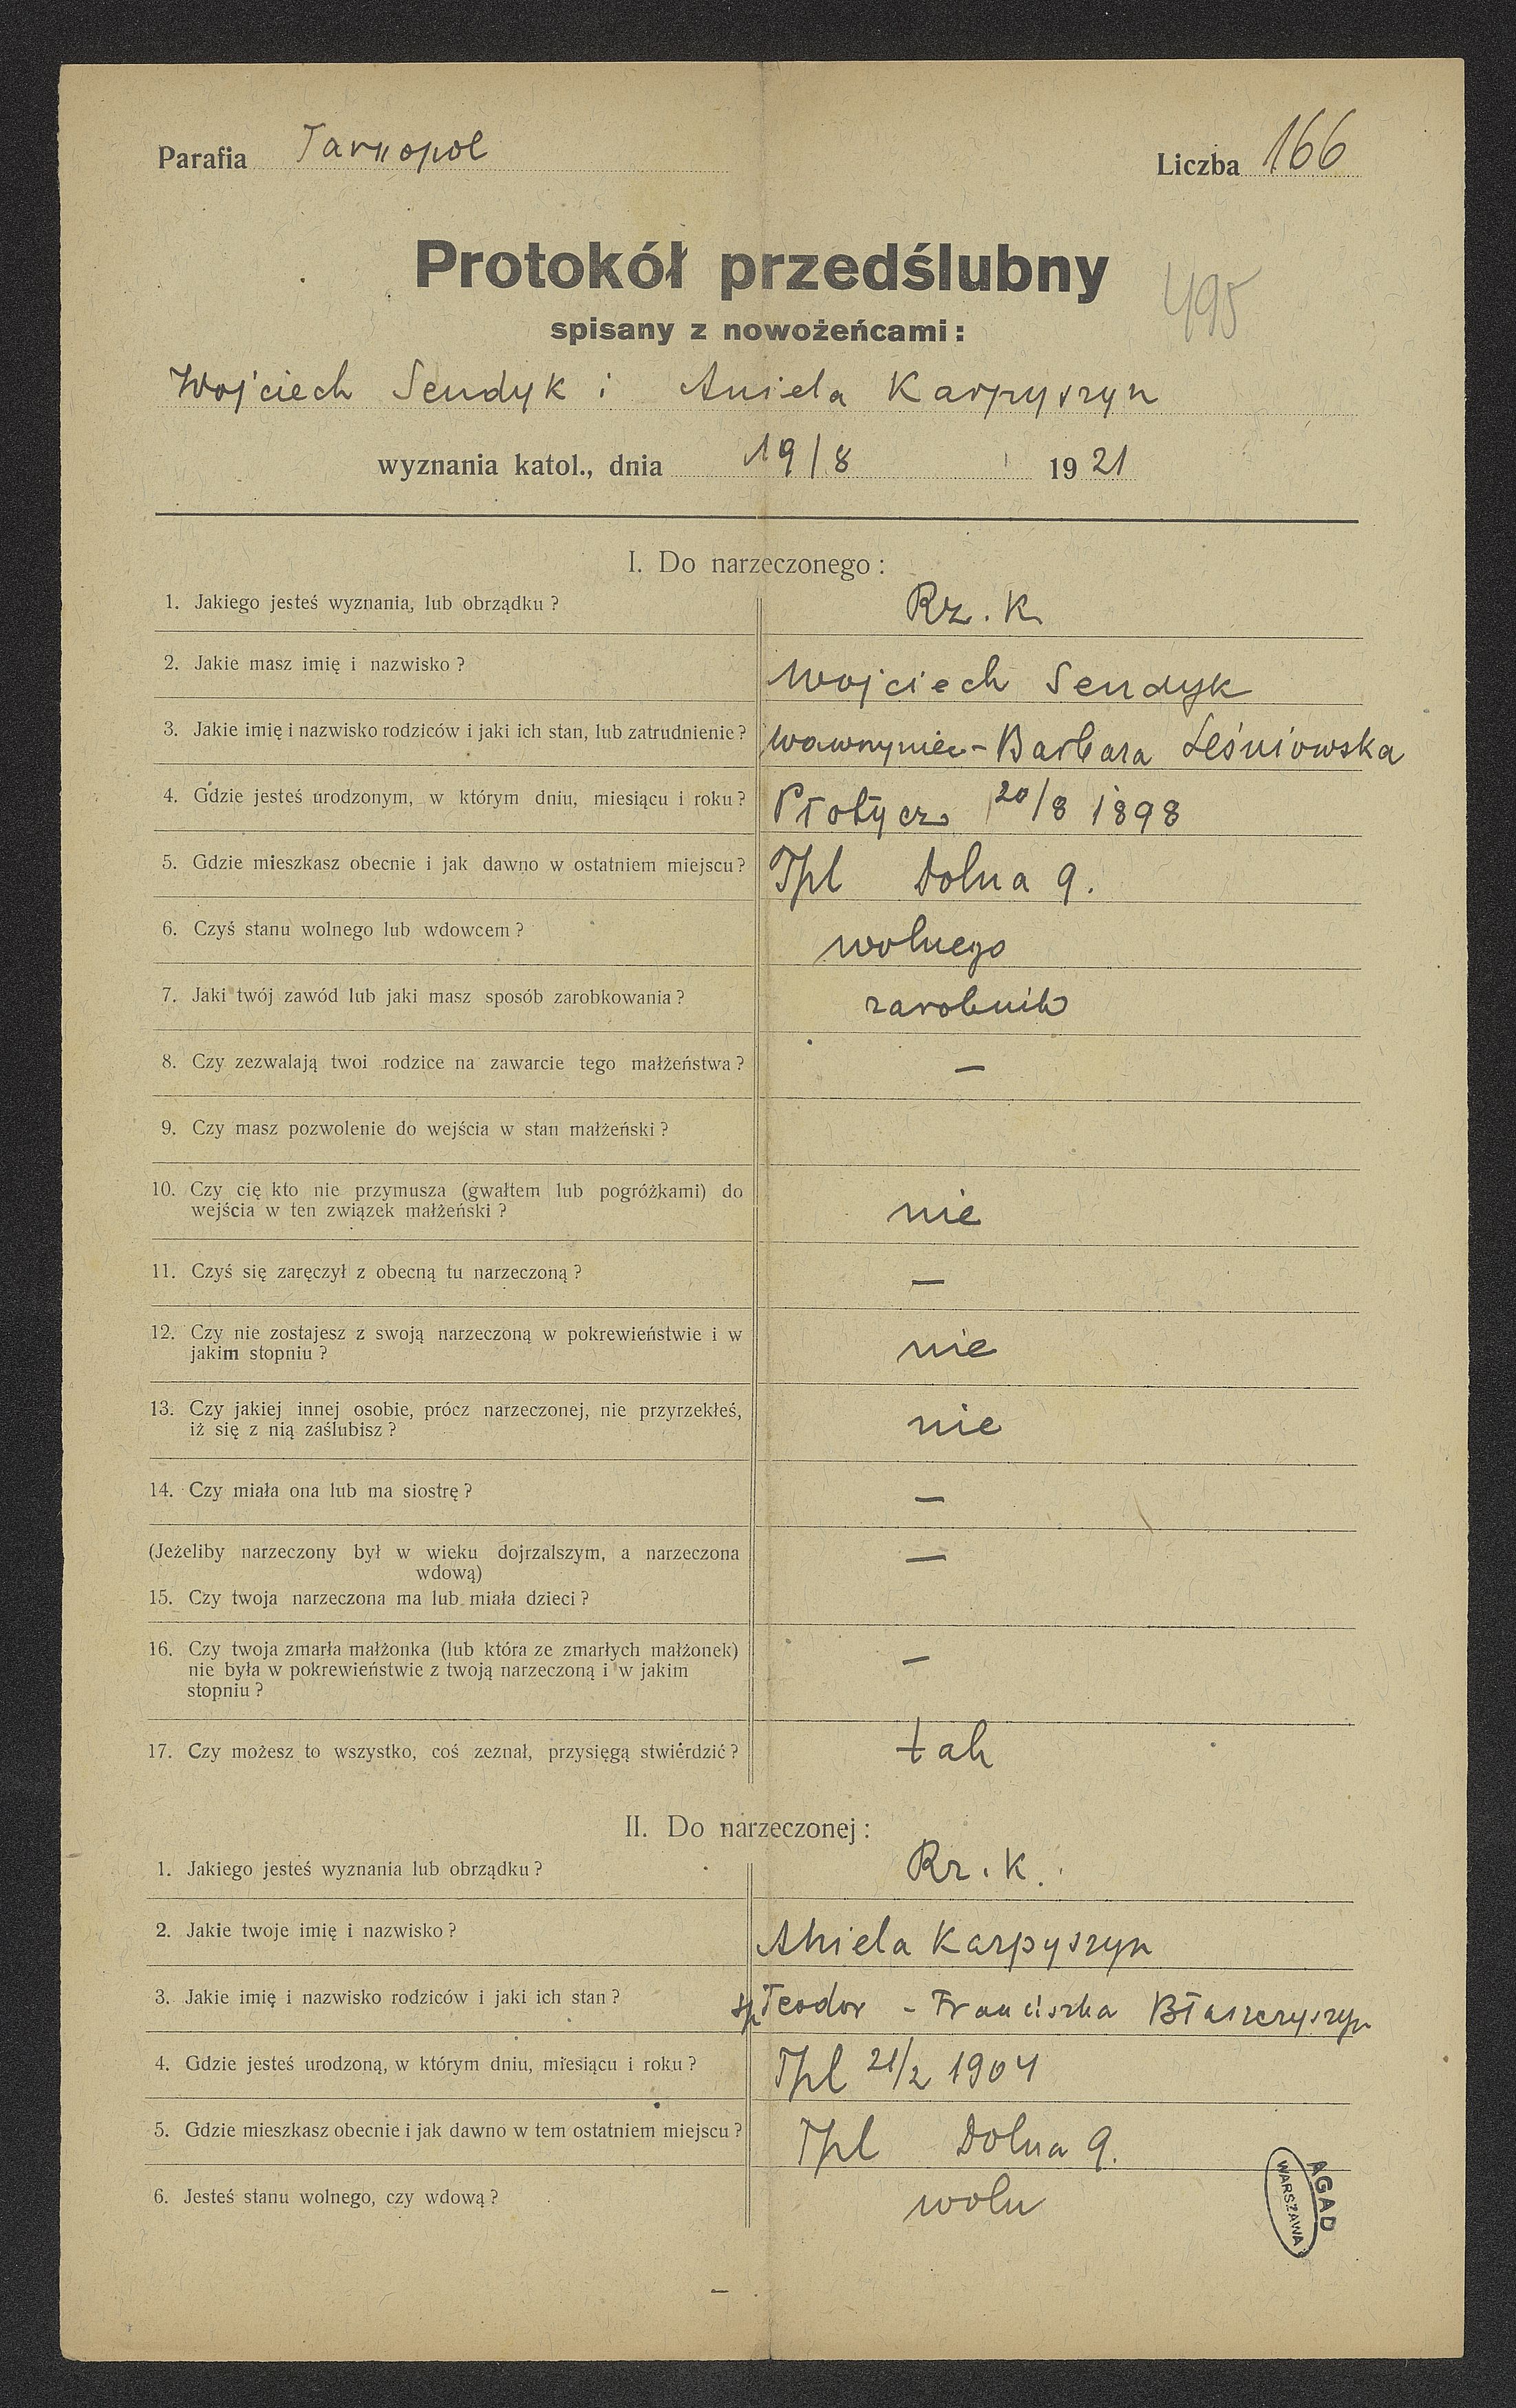 Parafia Tarnopol Liczba 166
Protokół przedślubny
495
spisany z nowożeńcami:
Wojciech Sendyk i Aniela Karpyszyn
wyznania katol., dnia 19/8 1921
I. Do narzeczonego:
1. Jakiego jesteś wyznania, lub obrządku? Rz. K.
2. Jakie masz imię i nazwisko? Wojciech Sendyk
3. Jakie imię i nazwisko rodziców i jaki ich stan, lub zatrudnienie? Wawrzyniec - Barbara Leśniowska
4. Gdzie jesteś urodzonym, w którym dniu, miesiącu i roku? Płotycz 20/8 1898
5. Gdzie mieszkasz obecnie i jak dawno w ostatniem miejscu? Tpl Dolna 9.
6. Czyś stanu wolnego lub wdowcem? wolnego
7. Jaki twój zawód lub jaki masz sposób zarobkowania? zarobnik
8. Czy zezwalają twoi rodzice na zawarcie tego małżeństwa? —
9. Czy masz pozwolenie do wejścia w stan małżeński?
10. Czy cię kto nie przymusza (gwałtem lub pogróżkami) do
wejścia w ten związek małżeński? nie
11. Czyś się zaręczył z obecną tu narzeczoną? —
12. Czy nie zostajesz z swoją narzeczoną w pokrewieństwie i w
jakim stopniu? nie
13. Czy jakiej innej osobie, prócz narzeczonej, nie przyrzekłeś,
iż się z nią zaślubisz? nie
14. Czy miała ona lub ma siostrę? —
(Jeżeliby narzeczony był w wieku dojrzalszym, a narzeczona —
wdową)
15. Czy twoja narzeczona ma lub miała dzieci?
16. Czy twoja zmarła małżonka (lub która ze zmarłych małżonek)
nie była w pokrewieństwie z twoją narzeczoną i w jakim —
stopniu?
17. Czy możesz to wszystko, coś zeznał, przysięgą stwierdzić? tak
II. Do narzeczonej:
1. Jakiego jesteś wyznania lub obrządku? Rz. K.
2. Jakie twoje imię i nazwisko? Aniela Karpyszyn
3. Jakie imię i nazwisko rodziców i jaki ich stan? śp Teodor - Franciszka Błaszczyszyn
4. Gdzie jesteś urodzoną, w którym dniu, miesiącu i roku? Tpl 21/2 1904
5. Gdzie mieszkasz obecnie i jak dawno w tem ostatniem miejscu? Tpl Dolna 9.
6. Jesteś stanu wolnego, czy wdową? woln
AGAD
WARSZAWA